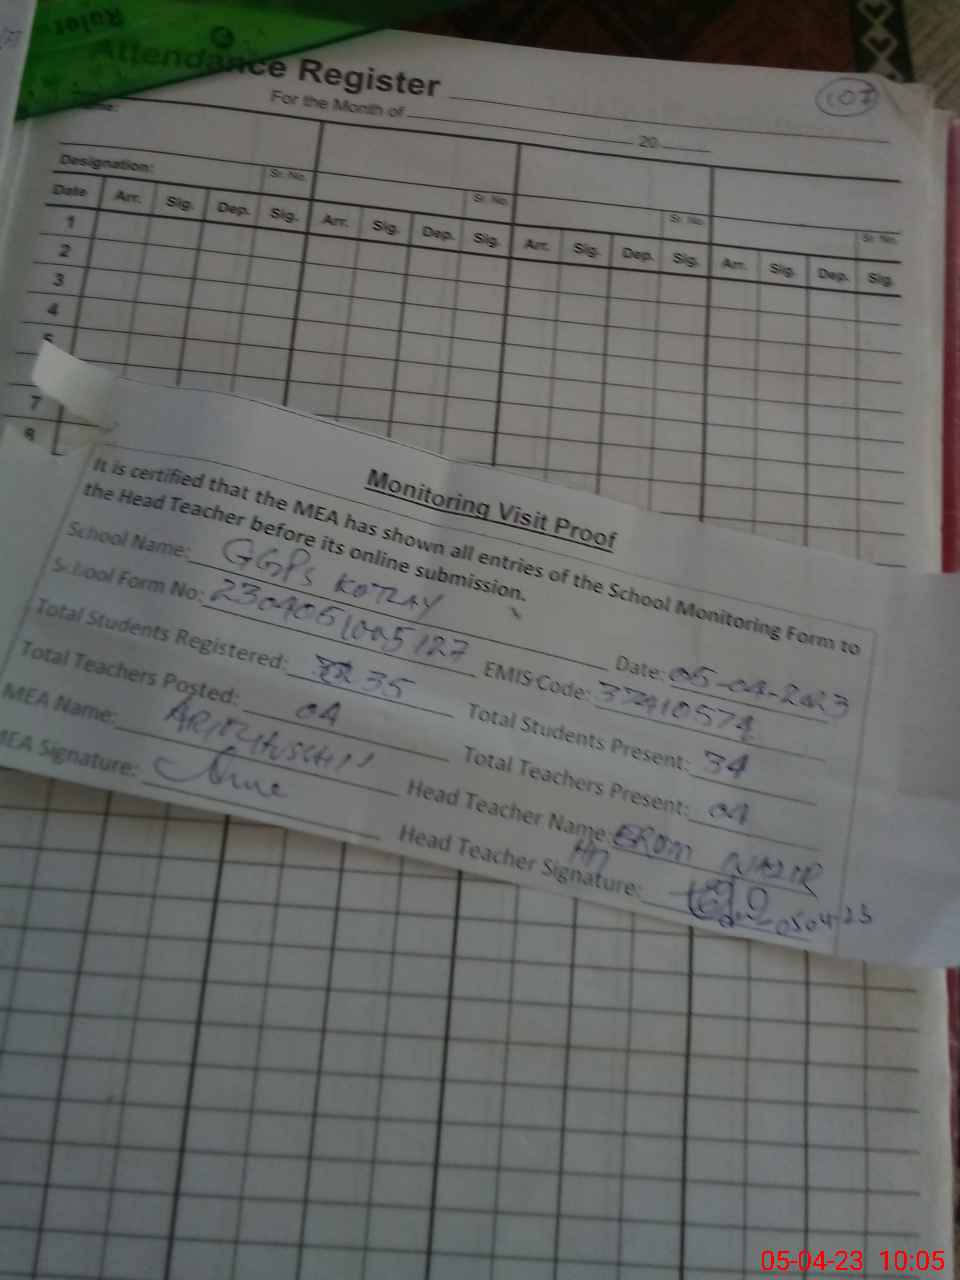 Rules
Attendance Register
107
For the Month of 20
Designation: Sr. No. Sr. No. Sr. No. Sr. No.
Date Arr. Sig. Dep. Sig. Arr. Sig. Dep. Sig. Arr. Sig. Dep. Sig. Arr. Sig. Dep. Sig.
1
2
3
4
5
7
8
Monitoring Visit Proof
It is certified that the MEA has shown all entries of the School Monitoring Form to
the Head Teacher before its online submission.
School Name: GGPS KOTLAY Date: 05-04-2023
School Form No: 2304051005127 EMIS Code: 37410574
Total Students Registered: 35 Total Students Present: 34
Total Teachers Posted: 04 Total Teachers Present: 04
MEA Name: Head Teacher Name: NAZIR
MEA Signature: Head Teacher Signature: 05 04-23
05-04-23 10:05